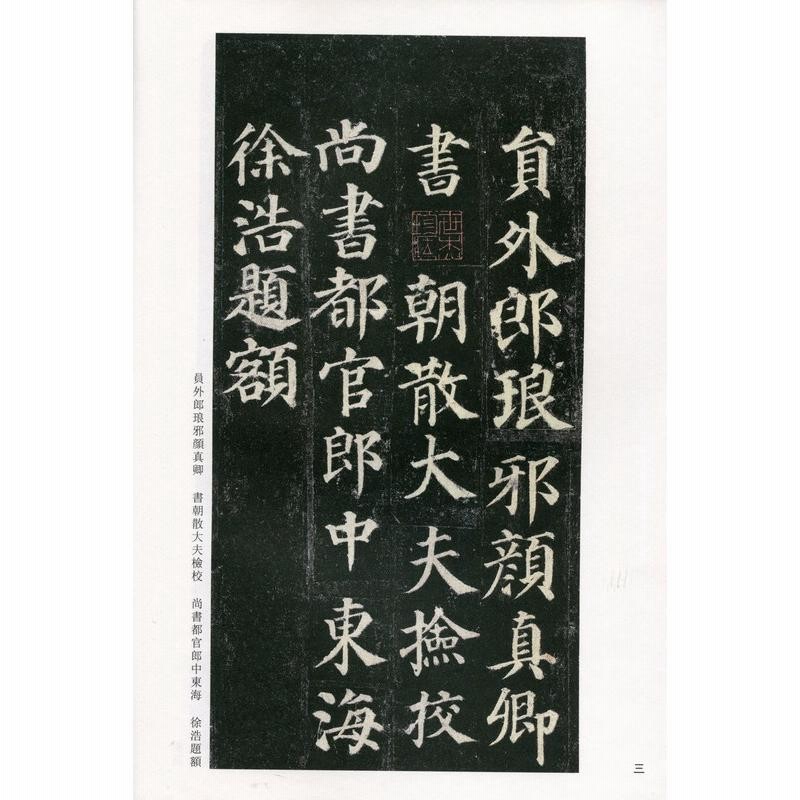 員外郎琅邪顏真卿
書朝散大夫撿挍
尚書都官郎中東海
徐浩題額
員外郎琅邪顏真卿 書朝散大夫檢校 尚書都官郎中東海 徐浩題額
三